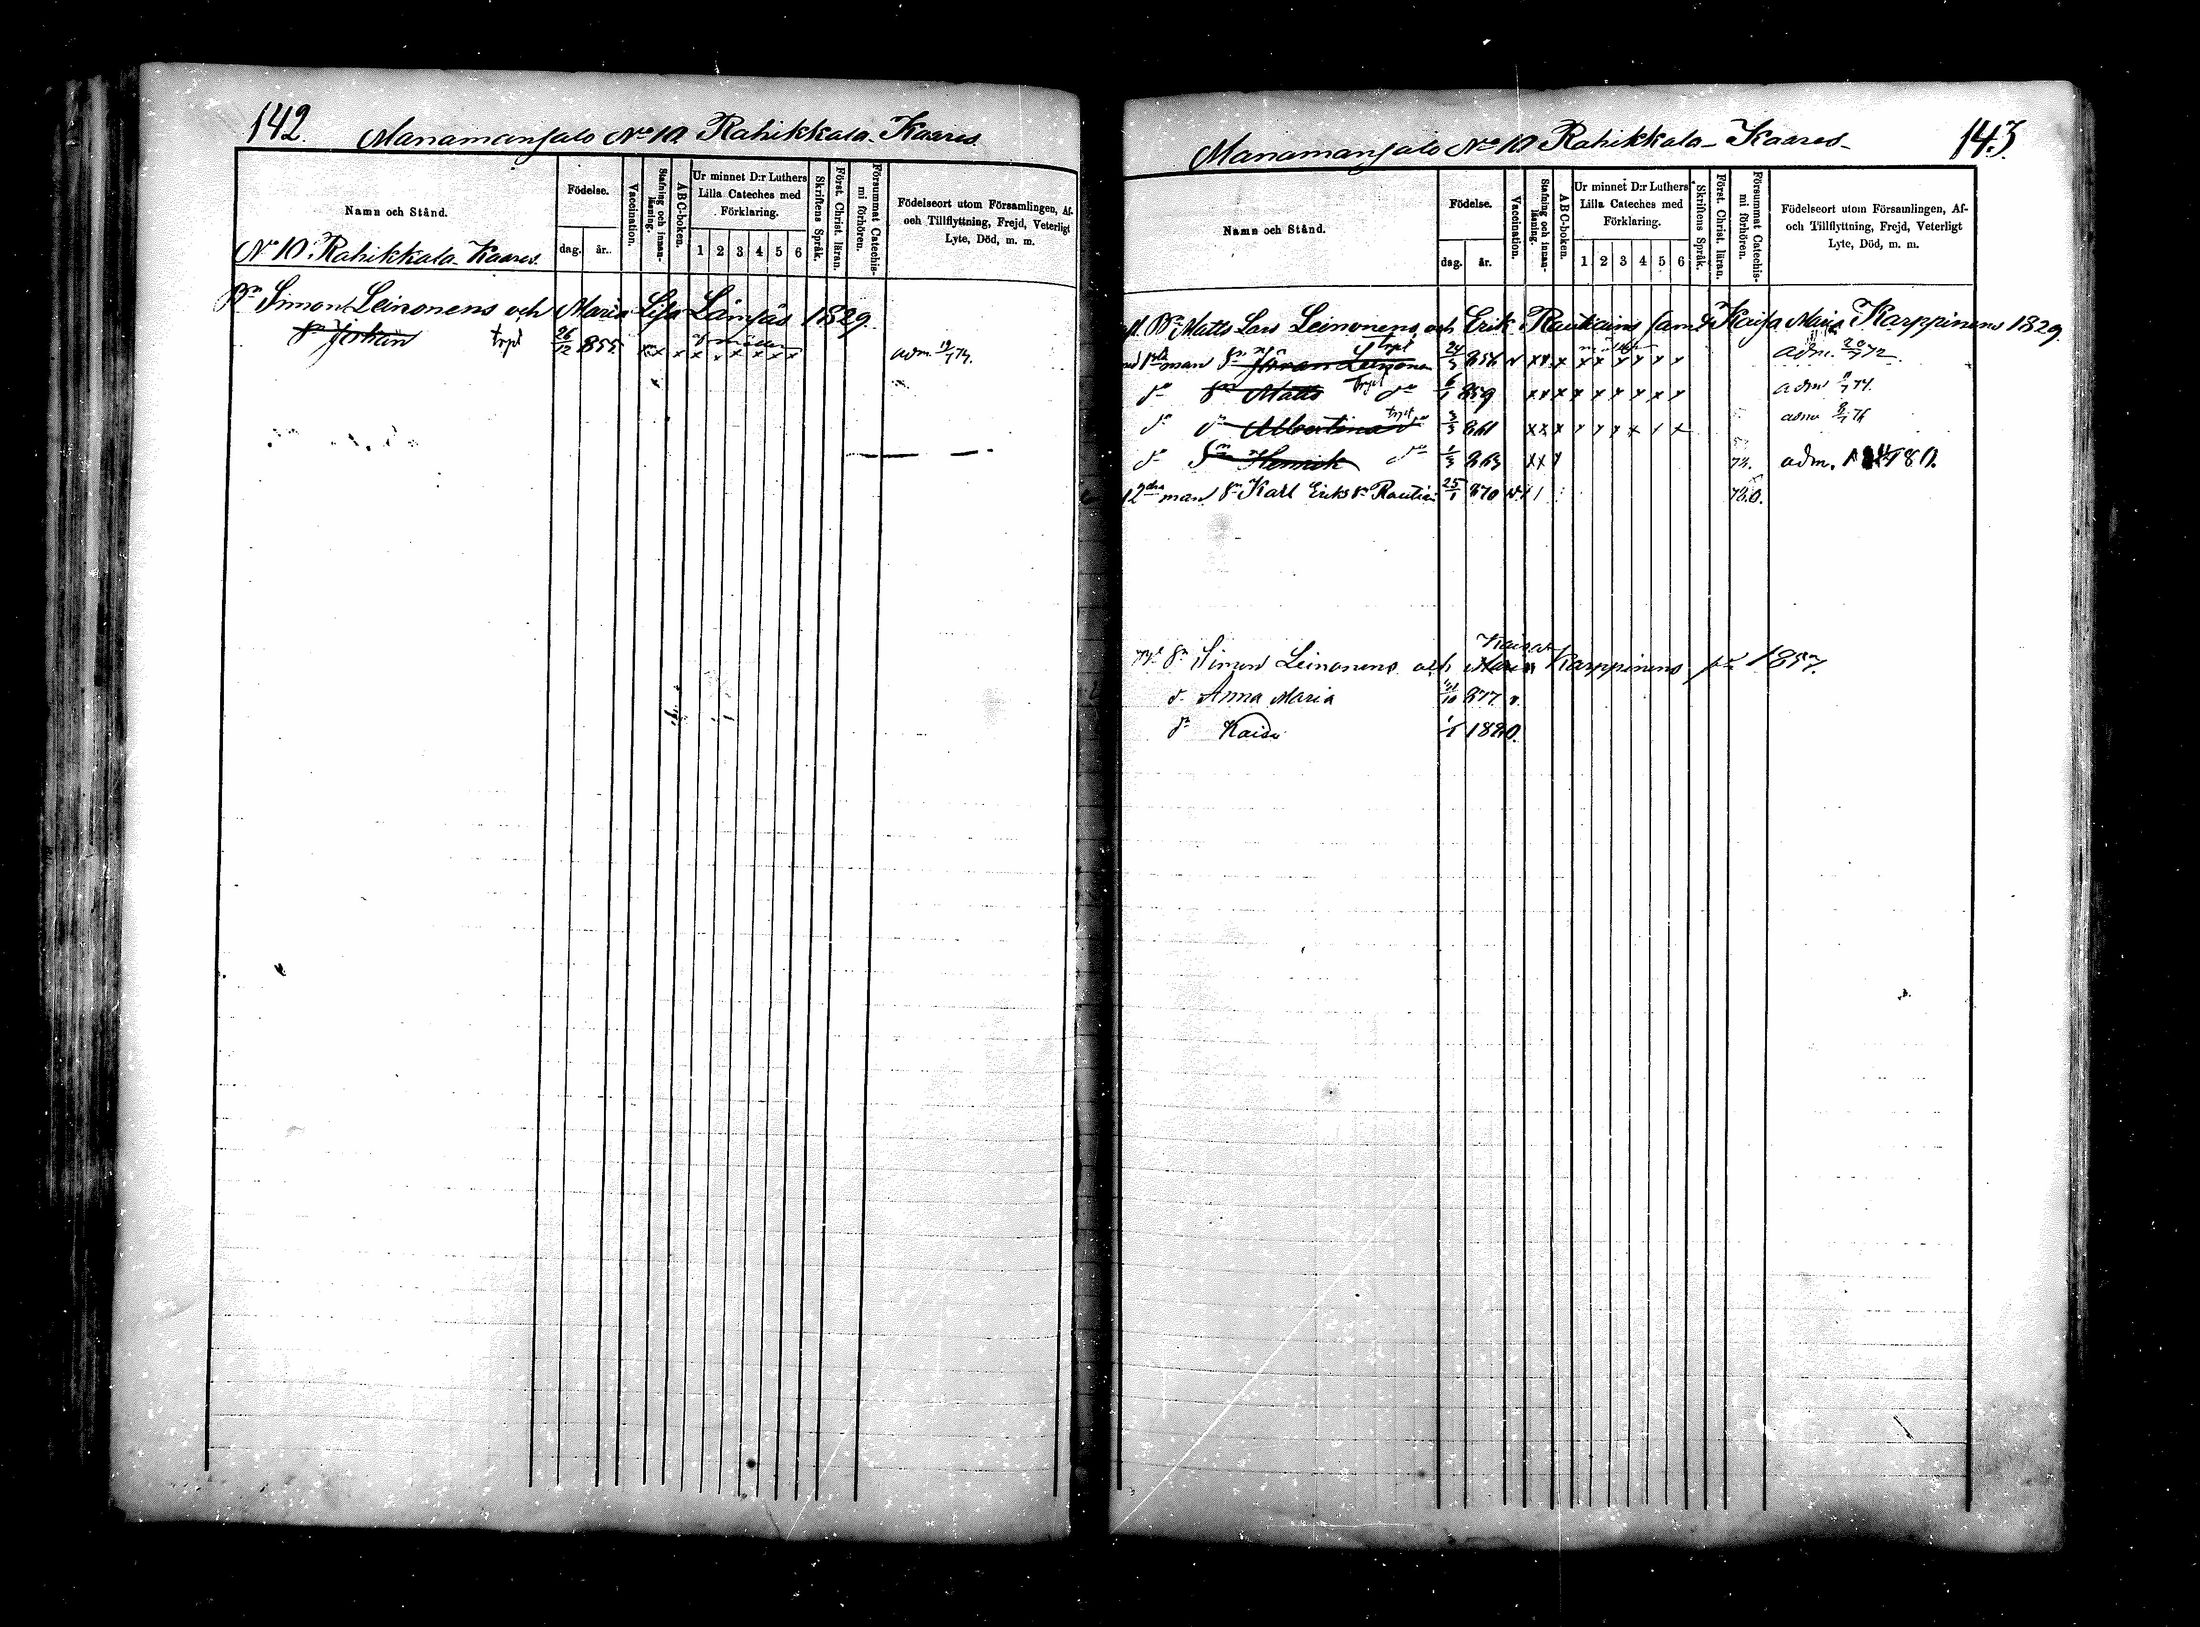 142. Manamansalo No 10. Rahikkala-Kaares.
Namn och Stånd.
Födelse.
dag.
år.
Vaccination.
Stafning och innanläsning.
ABC-boken.
Ur minnet D:r Luthers
Lilla Cateches med
Förklaring.
1 2 3 4 5 6
Skriftens Språk.
Först. Christ. läran.
Försummat Catechismi förhören.
Födelseort utom Församlingen, Af-
och Tillflyttning, Frejd, Veterligt
Lyte, Död, m. m.
No 10. Rahikkala-Kaares.
Bn Simon Leinonens och Maria Lisa Lämsäs 1829.
Sn Johan 26/12 855. x x x x x x x x x adm. 74.
Manamansalo No 10 Rahikkala-Kaares- 143.
Namn och Stånd.
Födelse.
dag.
år.
Vaccination.
Stafning och innanläsning.
ABC-boken.
Ur minnet D:r Luthers
Lilla Cateches med
Förklaring.
1 2 3 4 5 6
Skriftens Språk.
Först. Christ. läran.
Försummat Catechismi förhören.
Födelseort utom Församlingen, Af-
och Tillflyttning, Frejd, Veterligt
Lyte, Död, m. m.
Bn Matts Lars Leinonens och Erik Rautiains samt Kaisa Maria Karppinens 1829.
man Sn Göran Leinonen 24/3 856 v x x x x x x x x x adm. 72.
do Sn Matts do 859 x x x x x x x x x adm 74.
do dr Albertina do 3/3 861 x x x x x x x x x adm 76
do Sn Henrik do 1/3 863 x x x 74. adm. 1880.
2dra man Sn Karl Eriks sn Rautiai 25/1 870 v 78.0.
Sn Simon Leinonens och Maria Kaisa Karppinens 1857.
d. Anna Maria 877 v.
dr Kaisa 1880.